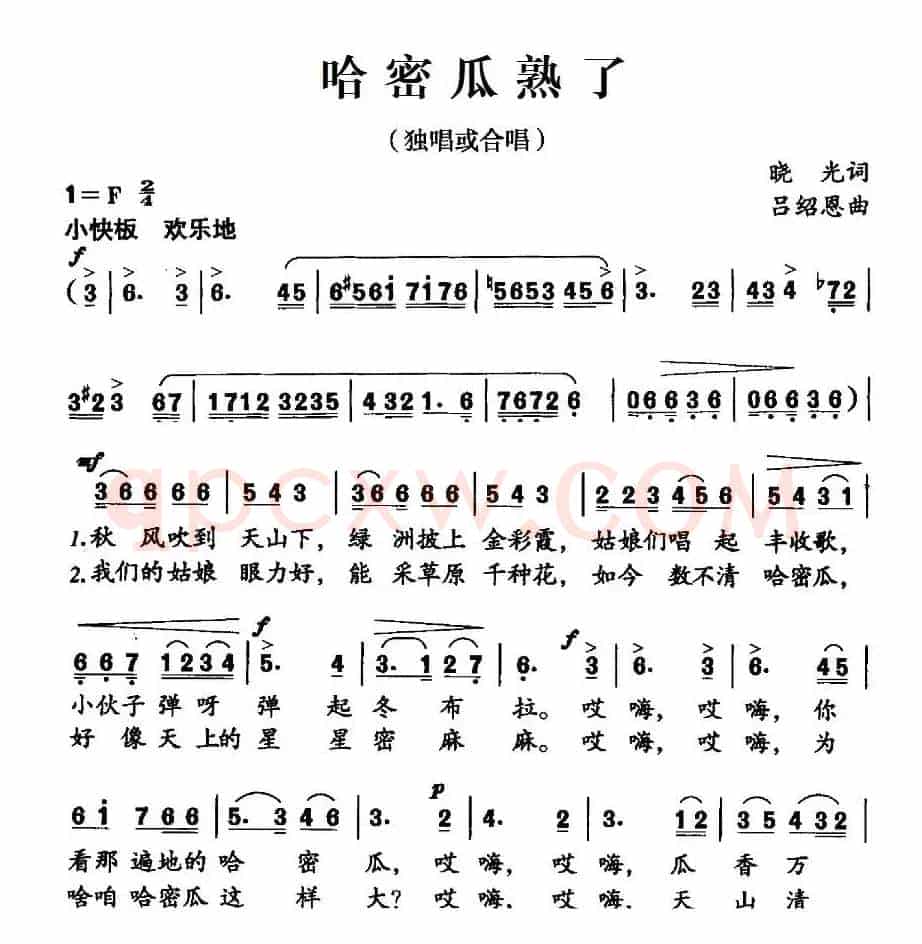 哈密瓜熟了
（独唱或合唱）
晓 光词
1=F 2/4
吕绍恩曲
小快板 欢乐地
f
(3 | 6. 3 | 6. 45 | 6#56i 7i76 | ♮5653 456 | 3. 23 | 43 4 ♭72 |
3#2 3 67 | 1712 3235 | 4321. 6 | 76726 | 06636 | 06636) |
mf
366 66 | 543 | 366 66 | 543 | 223 456 | 54 31 |
1.秋 风吹到 天山下，绿 洲披上 金彩霞，姑娘们唱 起 丰收歌，
2.我们的姑娘 眼力好，能 采草原 千种花，如今 数不清 哈密瓜，
f f
667 1234 | 5. 4 | 3. 127 | 6. 3 | 6. 3 | 6. 45 |
小伙子弹呀 弹 起 冬 布 拉。哎 嗨，哎 嗨，你
好 像天上的星 星密麻 麻。哎 嗨，哎 嗨，为
p
6i 766 | 5. 3 46 | 3. 2 | 4. 2 | 3. 12 | 35 432 |
看那 遍地的 哈 密 瓜，哎 嗨，哎 嗨，瓜 香 万
啥咱 哈密瓜 这 样 大？哎 嗨，哎 嗨，天 山 清
qpcxw.COM